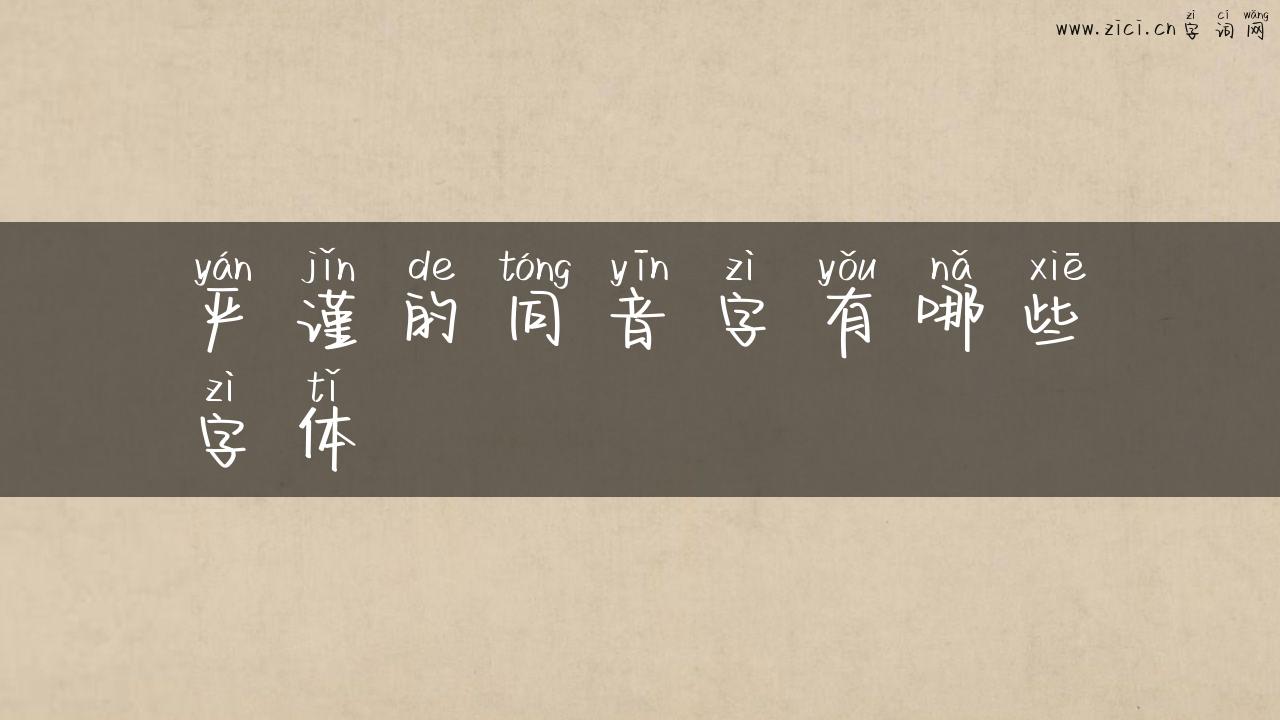 zì cí wǎng
www.zici.cn字词网
yán jǐn de tóng yīn zì yǒu nǎ xiē
严谨的同音字有哪些
zì tǐ
字体